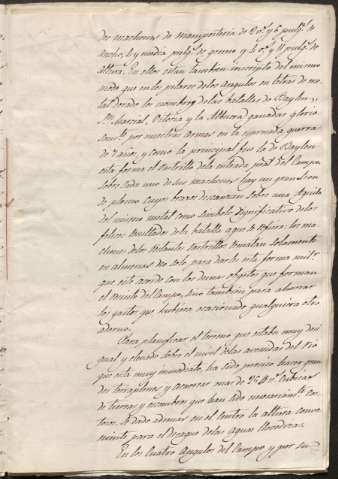 dos machones de mampostería de 2 v.s y 6 pulg.s de
ancho, 4 y media pulg.s de grueso y 4 v.s y 11 pulg.s de
altura. En ellos estan tambien inscriptos del mismo
modo que en los pilares de los angulos en letras de me-
tal dorado los nombres de las batallas de Baylen,
S.n Marcial, Vitoria y la Albuera ganadas glorio
sam.te por nuestras armas en la espresada guerra
de 7 años, y como la principal fue la de Baylen
esta forma el castrillo de la entrada pral del Campo.
Sobre cada uno de sus machones hay un gran leon
de plomo cuyos brazos descansan sobre una Aguila
del mismo metal como simbolo significativo de los
felices resultados de la batalla a que se refiere: los ma-
chones de los restantes castrillos rematan solamente
en almenas no solo para darle esta forma mil.r
que este acorde con los demas objetos que forman
el ornato del Campo, sino tambien para ahorrar
los gastos que hubiera ocasionado qualquiera otro
adorno.
Para planificar el terreno que estaba muy desi
gual y elevado sobre el nivel de las avenidas del rio
que esta muy inmediato, ha sido preciso hacer gran
des terraplenes y acarrear mas de 26 @ v.s cubicas
de tierras y escombros que han sido
dado ademas en el centro la altura conve
niente para el desague de las aguas llovedizas.
En los cuatro Angulos del Campo y por su